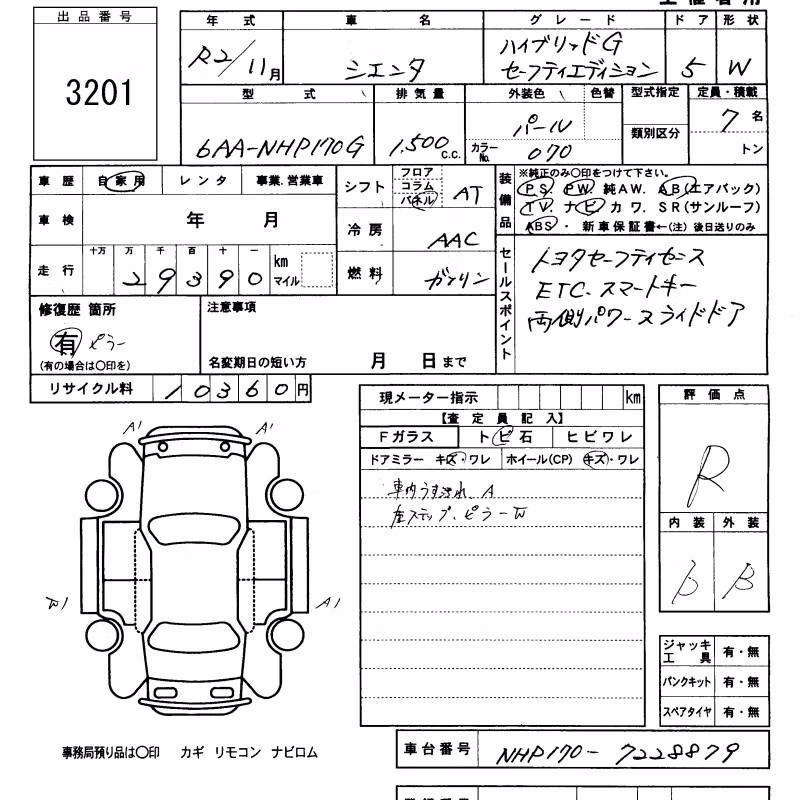 出品番号
3201
年式 車名 グレード ドア 形状
R2/11月 シエンタ ハイブリッドG
セーフティエディション 5 W
型式 排気量 外装色 色替 型式指定 定員・積載
6AA-NHP170G 1,500c.c. パール 7名
カラーNo. 070 類別区分 トン
車歴 自家用 レンタ 事業.営業車
車検 年 月
走行 十万 万 千 百 十 一
29390 km マイル
シフト フロア コラム パネル AT
冷房 AAC
燃料 ガソリン
装備品 ※純正のみ〇印をつけて下さい。
PS PW 純AW. AB(エアバック)
TV. ナビ カワ. SR(サンルーフ)
ABS・新車保証書←(注)後日送りのみ
セールスポイント
トヨタセーフティセンス
ETC. スマートキー
両側パワースライドドア
修復歴 箇所
有 ピラー
(有の場合は〇印を)
注意事項
名変期日の短い方 月 日まで
リサイクル料 10360円
現メーター指示 km
【査定員記入】
Fガラス トビ石 ヒビワレ
ドアミラー キズ・ワレ ホイール(CP) キズ・ワレ
車内うす汚れ A
ステップ.ピラーW
評価点
R
内装 外装
B
A1 A1
W1 A1
ジャッキ工具 有・無
パンクキット 有・無
スペアタイヤ 有・無
事務局預り品は〇印 カギ リモコン ナビロム
車台番号 NHP170-7228879